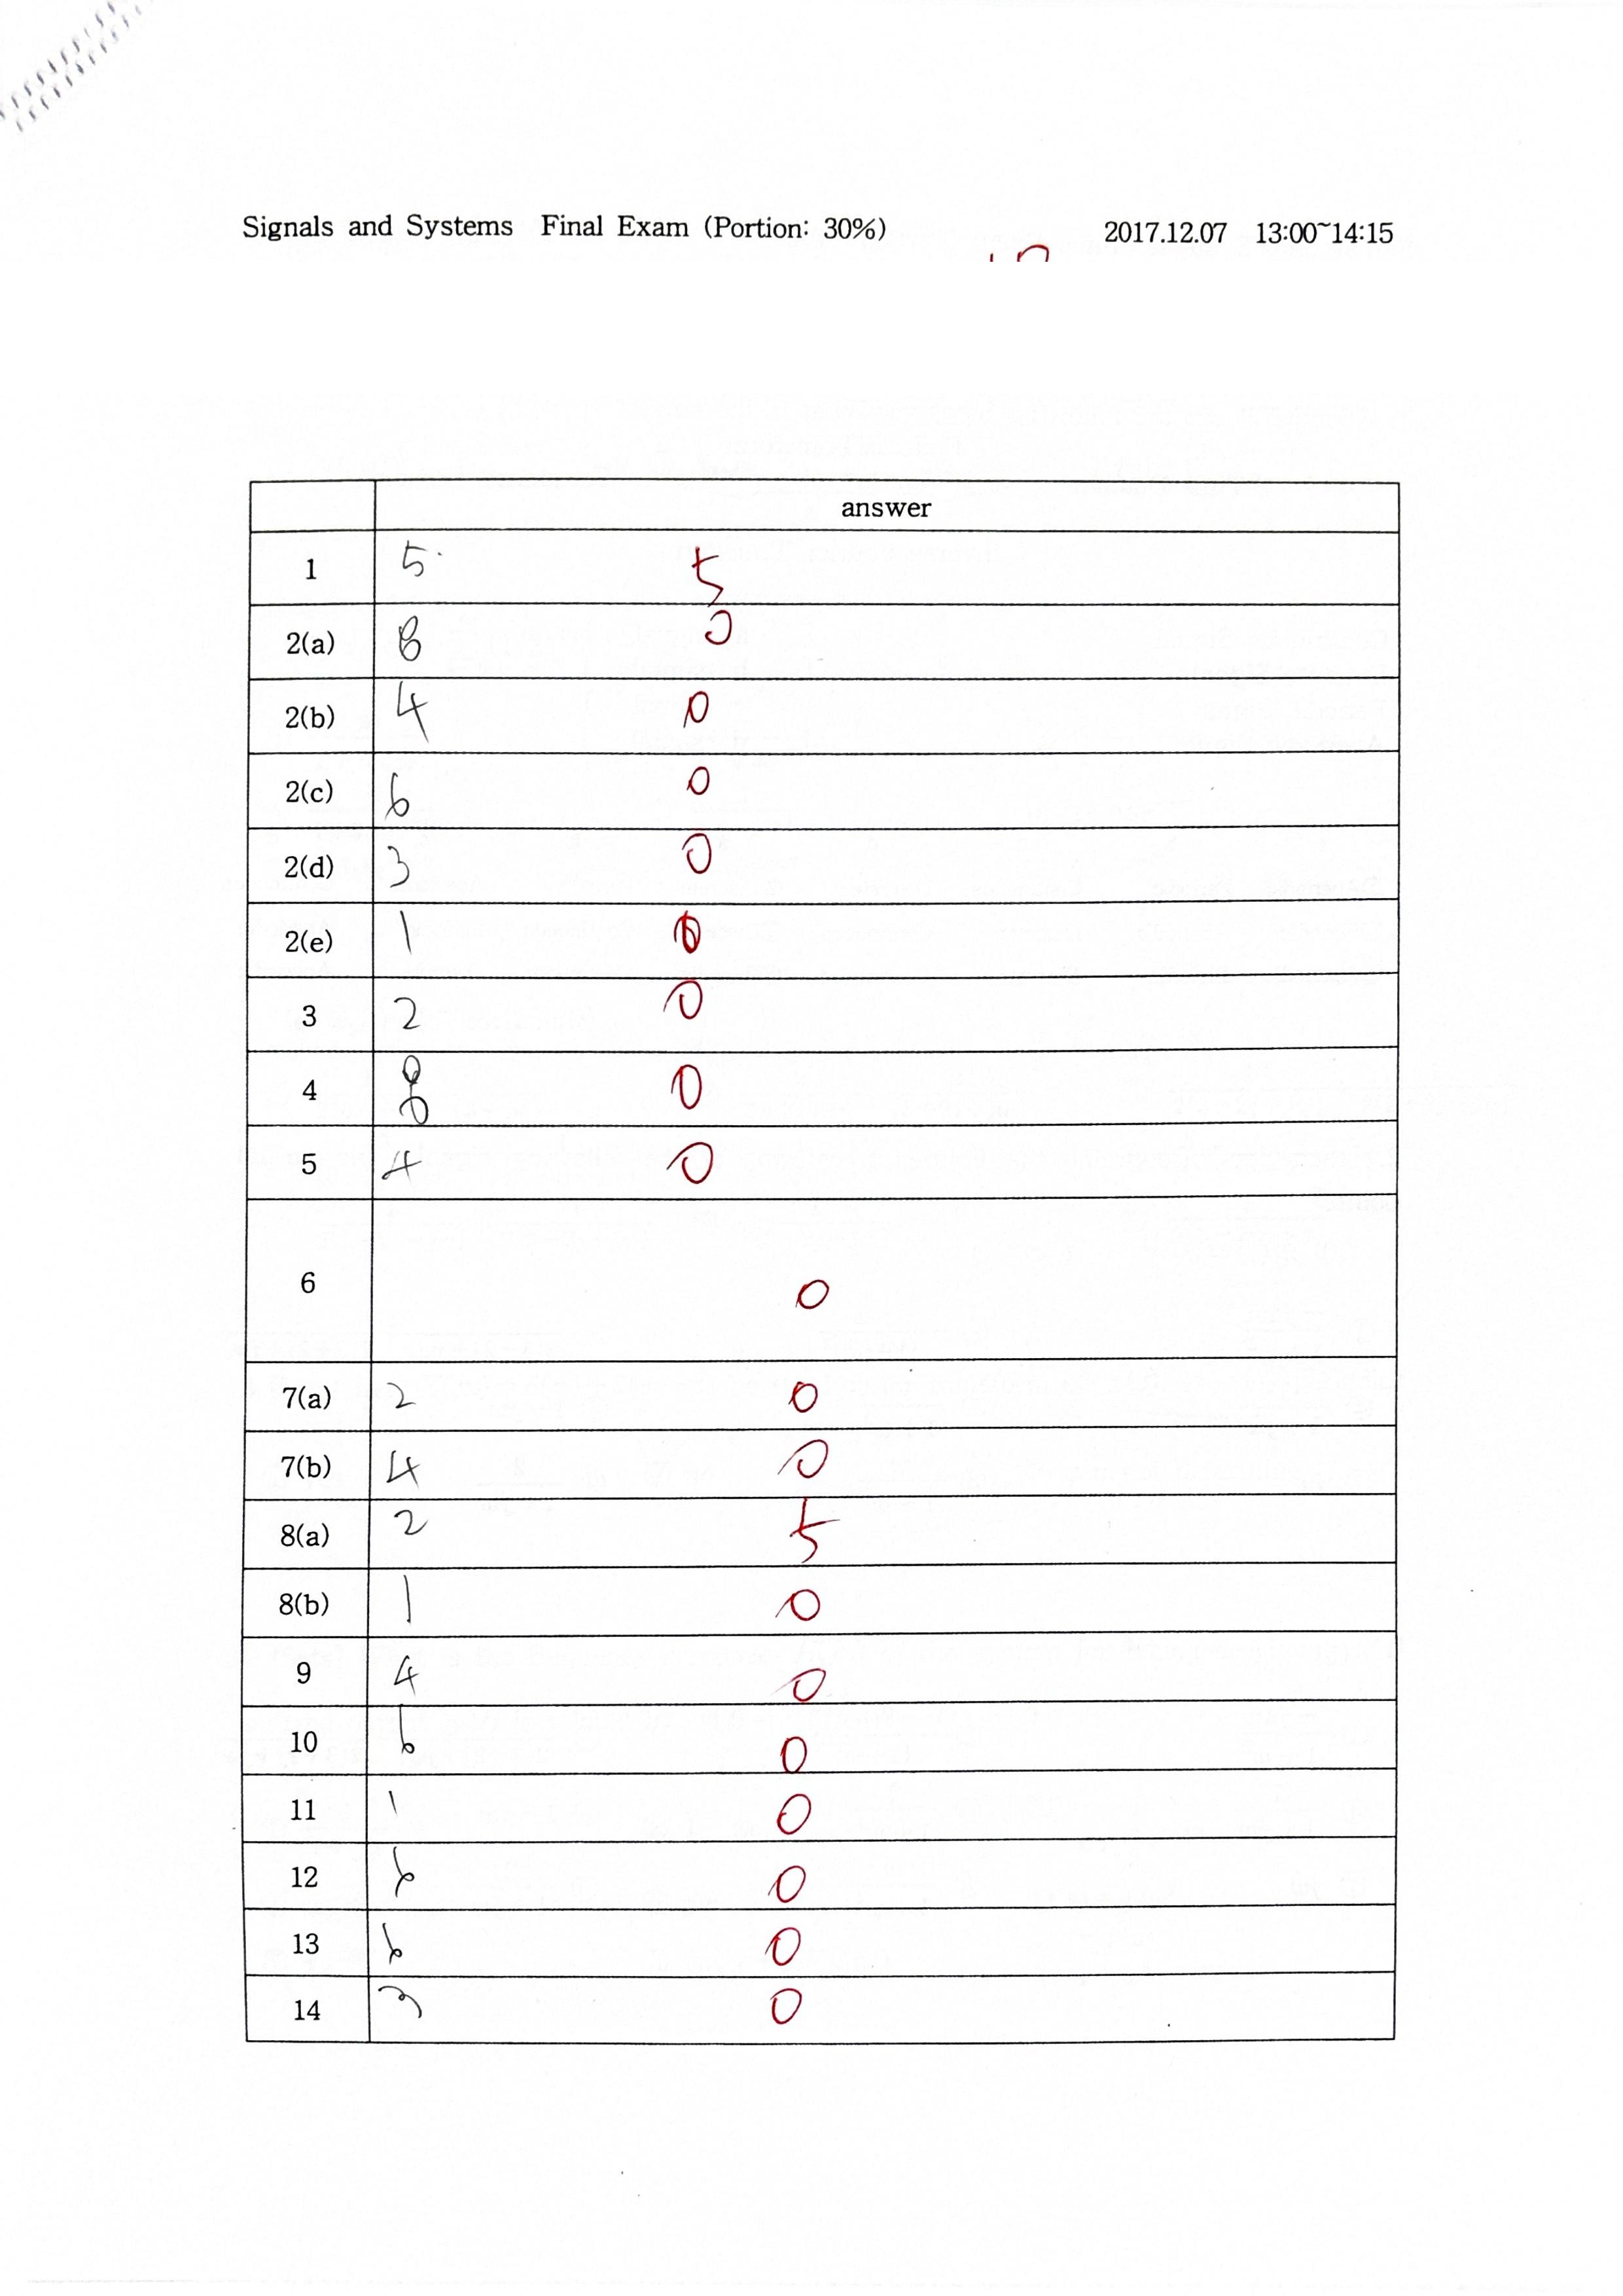 Signals and Systems Final Exam (Portion: 30%) 2017.12.07 13:00~14:15
answer
1 5. 5
2(a) 8 0
2(b) 4 0
2(c) 6 0
2(d) 3 0
2(e) 1 0
3 2 0
4 8 0
5 4 0
6 0
7(a) 2 0
7(b) 4 0
8(a) 2 5
8(b) 1 0
9 4 0
10 6 0
11 1 0
12 6 0
13 6 0
14 3 0